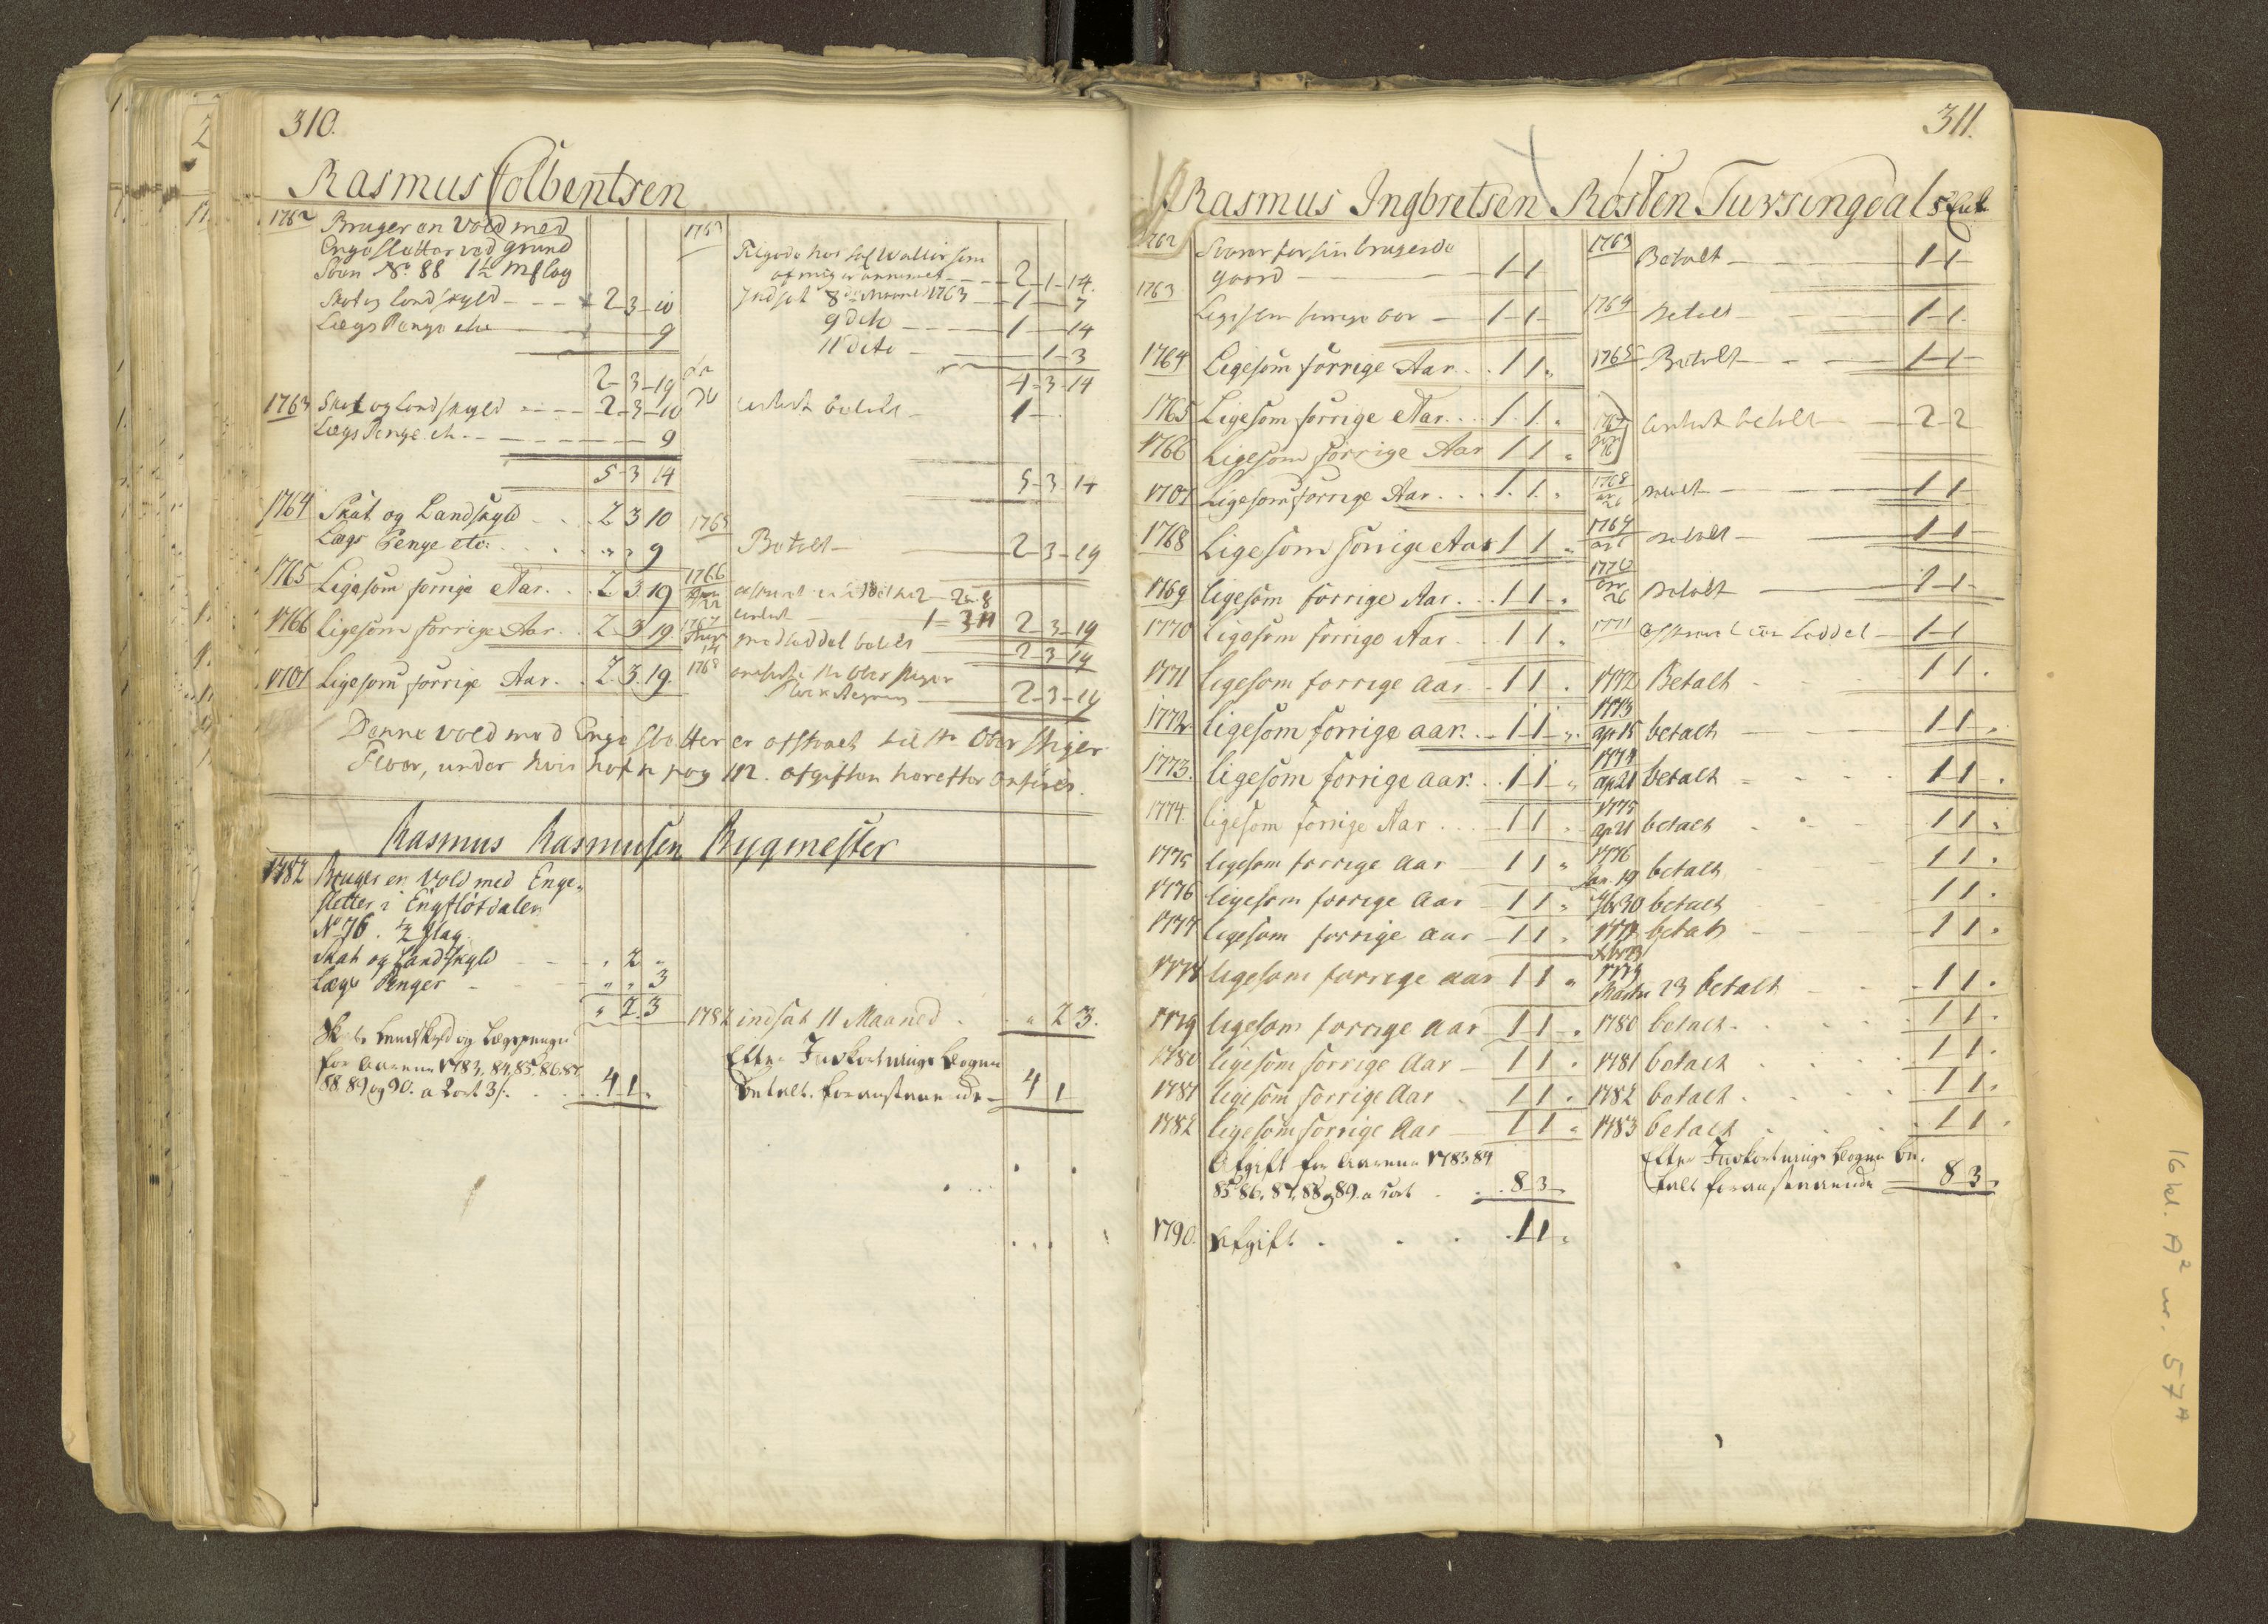 310.
Rasmus Colbentsen
1762 Bruger en Vold med
Enge Slotter ved Grund
Soen No. 88 1½ Mflag
Skat og Landskyld - - - 2-3-10
Lægs Penge etc 9
2-3-19
1763 Skat og Landskyld - - - 2-3-10
Lægs Penge etc. - - - 9
5-3 14
1764 Skat og Landskyld . . 2 3 10
Lægs Penge etc: . . . " " 9
1765 Ligesom forrige Aar. . . 2 3 19
1766 Ligesom forrige Aar. . 2 3 19
1767 Ligesom forrige Aar. . 2. 3. 19.
1763 Tilgode hos
2-1-14.
Indsat 8de Maaned 1763 - - 1 - 7
9 dito - - - 1 - 14
11 dito - 1-3
4-3-14
betalt - 1 -
5-3-14
1765 Betalt - 2-3-19
1766
22 2-2-8
1-3-11 2-3-19
1767 med Seddel betalt 2-3-19
1768 Ober Stiger
2-3-19
Denne Vold med Enge Slotter er afstaaet til Hr Ober Stiger
Floor, under hvis Nafn pag 112. afgiften herefter anføres.
Rasmus Rasmusen Bygmester
1782 Bruger en Vold med Enge-
sletter i Engfløtdalen
No 76. ½ flag.
Skat og Landskyld - - " 2 "
Lægs Penger - - " " 3
" 2. 3
1782 indsat 11 Maaned . . " 2 3.
Skat Landskyld og Lægspenger
for Aarene 1783, 84, 85, 86, 87,
88, 89 og 90. a 2 ort 3 s. . . . 4 1 "
Efter Indkortnings Bogen
betalt foranstaaende - 4 1
311.
Rasmus Ingbretsen Rosten Tursingdal
1762 Svarer for sin brugende
Gaard - 1-1-
1763 Betalt - 1-1-
1763 Ligesom forrige Aar - 1-1-
1764 Betalt - 1-1-
1764 Ligesom forrige Aar. . . 1 1 "
1765 Betalt - 1-1-
1765 Ligesom forrige Aar. . . 1. 1. "
1766 Ligesom forrige Aar 1 1 "
1767 betalt 2-2
1767 Ligesom forrige Aar. . . 1. 1. "
1768 betalt - 1-1-
1768 Ligesom forrige Aar 1 1 "
1769 betalt - 1-1-
1769 ligesom forrige Aar. . . 1 1 "
1770 26 betalt - 1-1-
1770 ligesom forrige Aar. . . 1 1 "
1771 Seddel - 1-1-
1771 ligesom forrige aar. . 1 1 .
1772 Betalt 1 1 .
1772 ligesom forrige aar. . 1-1-"
1773 ap 15 betalt 1 1 .
1773. ligesom forrige aar. . 1-1-"
1774 ap 21 betalt - 1-1 .
1774. ligesom forrige Aar . . 1 1 .
1775 ap 21 betalt - 1 1 "
1775 ligesom forrige aar 1 1 "
1776 Jan. 19 betalt 1 1 .
1776 ligesom forrige Aar - 1 1 "
30 betalt 1 1 .
1777 ligesom forrige aar - 1 1 .
betalt - 1 1 .
1778 ligesom forrige aar 1 1 "
1779 Martii 23 betalt - 1 1 .
1779 ligesom forrige aar 1 1 .
1780 betalt . . . 1 1 .
1780 ligesom forrige Aar - 1 1 .
1781 betalt . . . 1 1 .
1781 ligesom forrige Aar . 1 1 .
1782 betalt . . . 1 1 .
1782 ligesom forrige Aar - 1 1 "
1783 betalt . . . 1 1 .
Afgift for Aarene 1783 84
85, 86, 87, 88 og 89. a 5 ort . . 8 3 "
Efter Indkortnings Bogen be-
talt foranstaaende - 8 3.
1790. Afgift . . . 1 1 "
16 kl. A² nr. 57 A